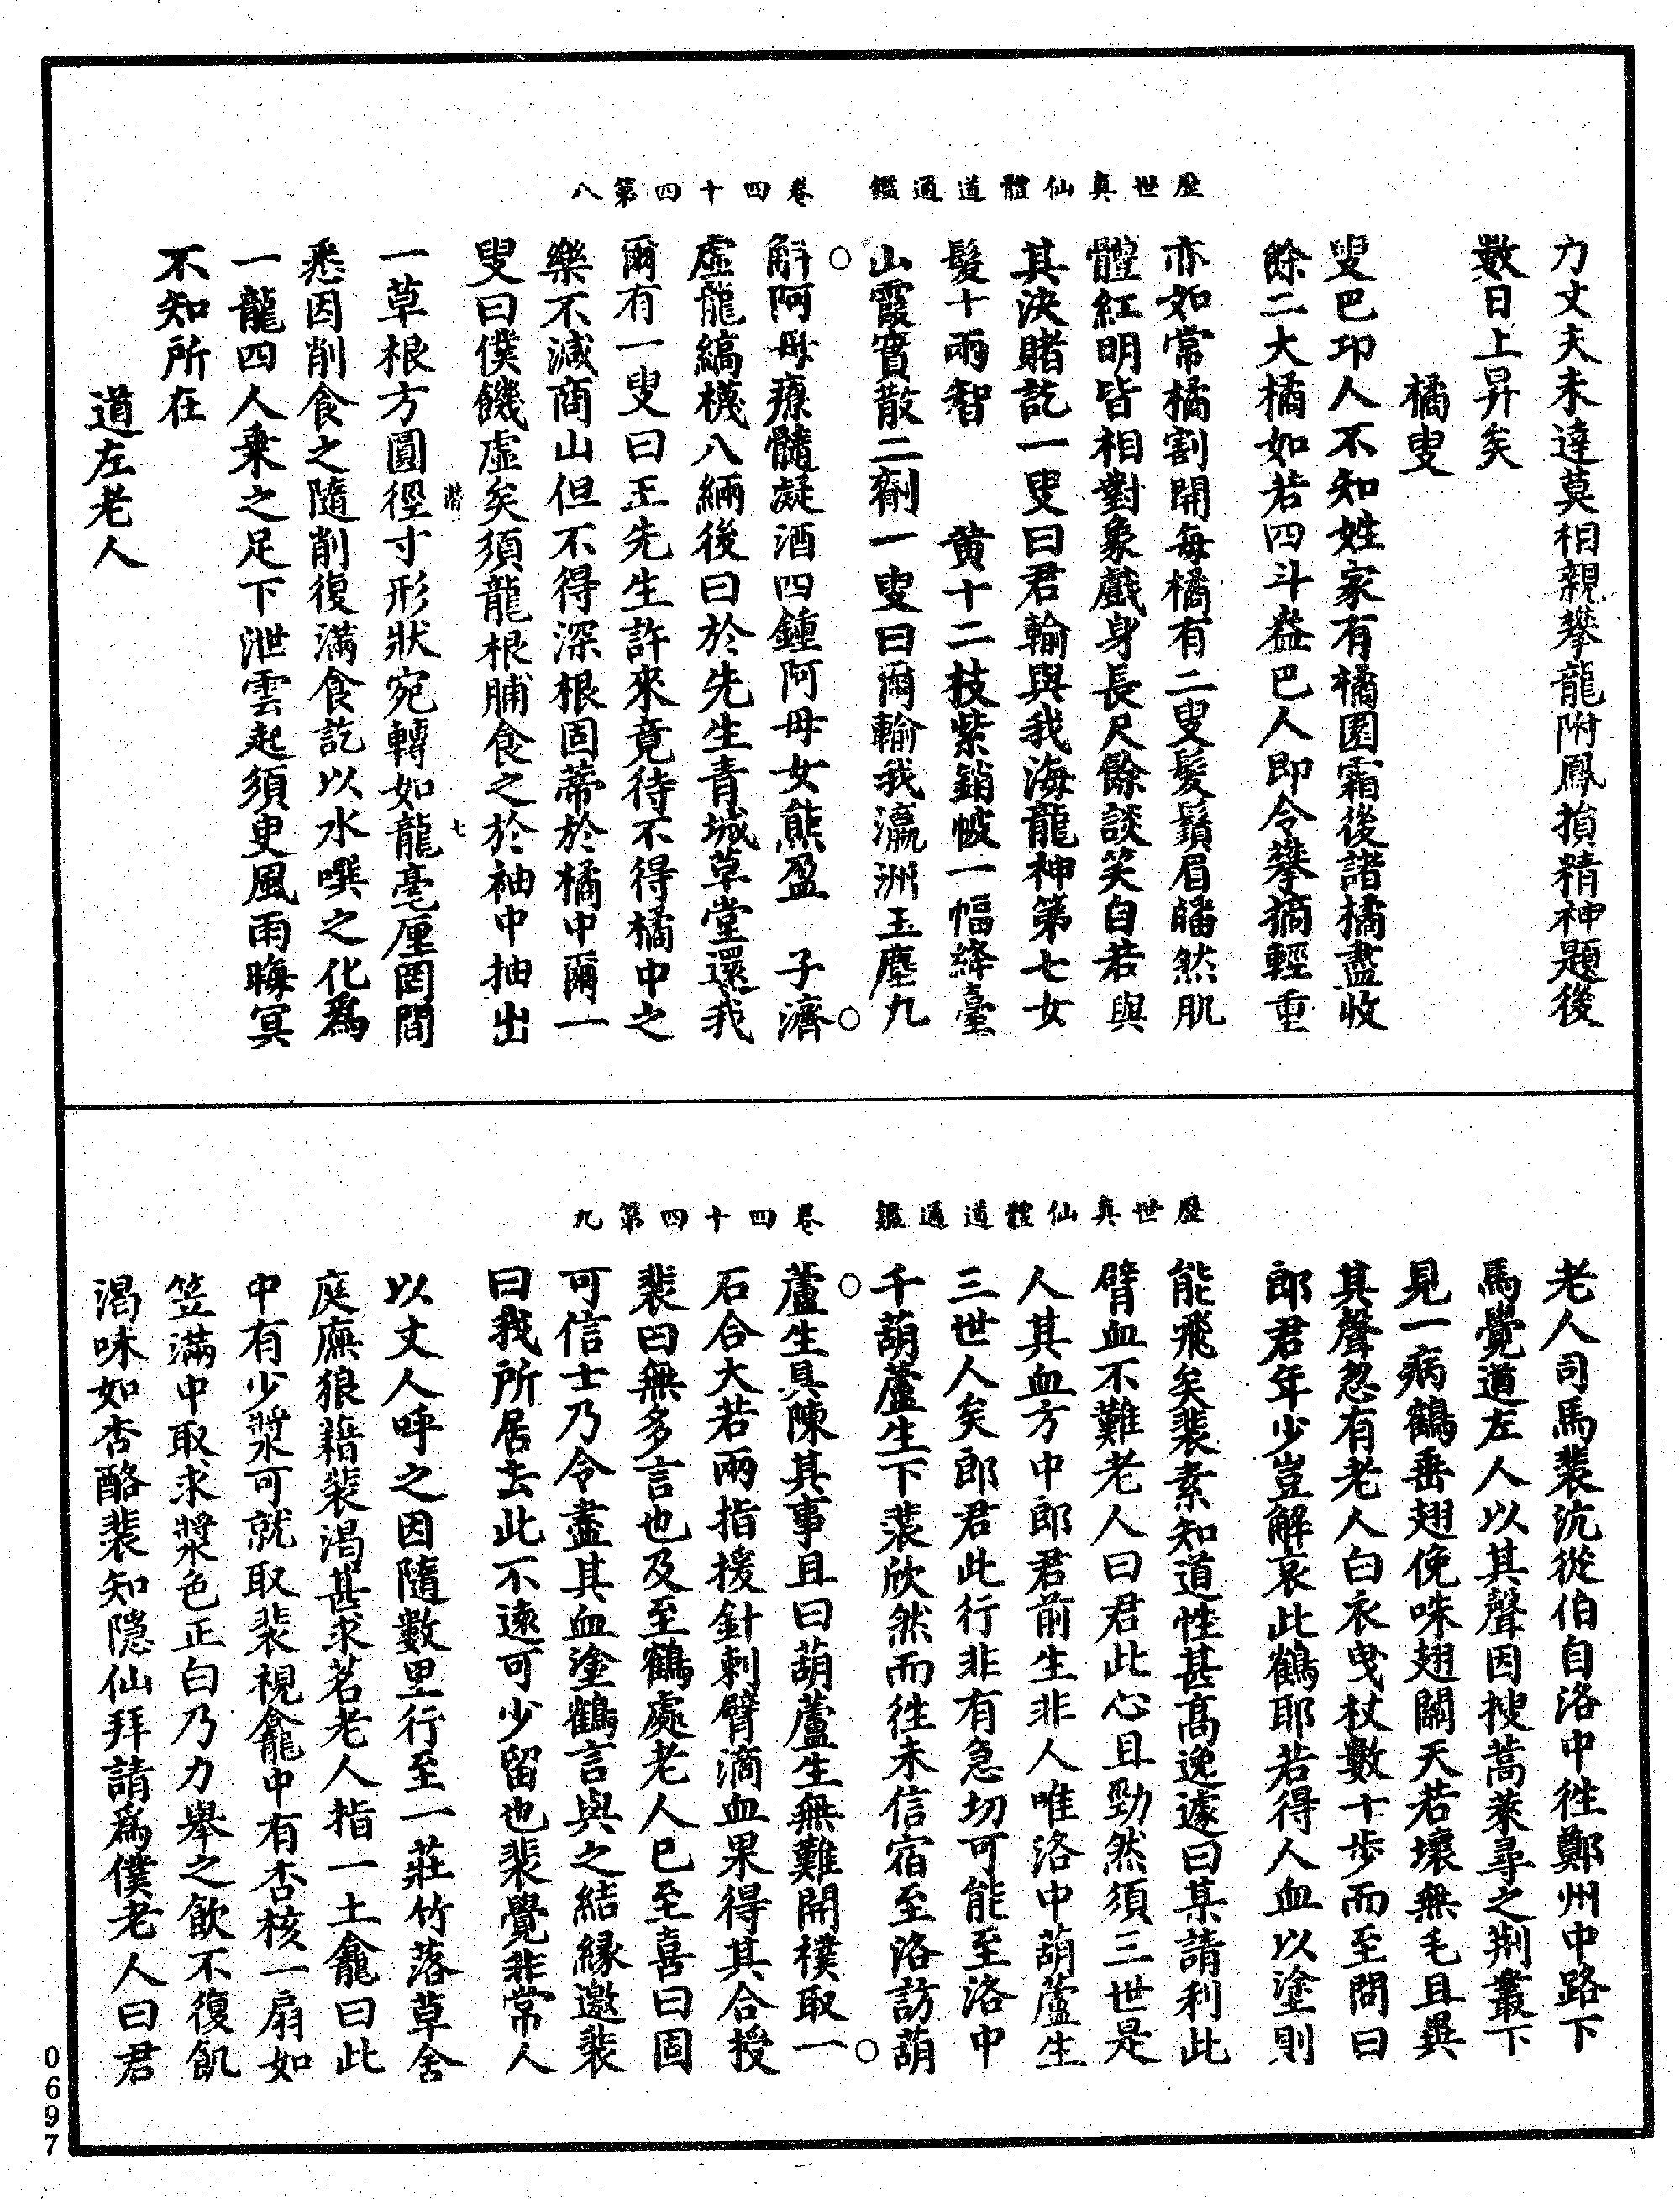 歷世真仙體道通鑑　卷四十四第八
力丈夫未達莫相親攀龍附鳳損精神題後
數日上昇矣
橘叟
叟巴卭人不知姓家有橘園霜後諸橘盡收
餘二大橘如若四斗盎巴人即令攀摘輕重
亦如常橘割開每橘有二叟髮鬚眉皤然肌
體紅明皆相對象戲身長尺餘談笑自若與
其決賭訖一叟曰君輸與我海龍神第七女
髮十兩智　黃十二枝紫銷帔一幅絳臺
山霞實散二劑一叟曰爾輸我瀛洲玉塵九
斛阿母療髓凝酒四鍾阿母女熊盈　子濟
虛龍縞襪八緉後曰於先生青城草堂還我
爾有一叟曰王先生許來竟待不得橘中之
樂不減商山但不得深根固蒂於橘中爾一
叟曰僕饑虛矣須龍根脯食之於袖中抽出
潛　七
一草根方圓徑寸形狀宛轉如龍毫厘罔間
悉因削食之隨削復滿食訖以水噀之化為
一龍四人乗之足下泄雲起須叟風雨晦冥
不知所在
道左老人
歷世真仙體道通鑑　卷四十四第九
老人司馬裴沆從伯自洛中徃鄭州中路下
馬覺道左人以其聲因搜蒿萊尋之荆叢下
見一病鶴垂翅俛咮翅關天若壞無毛且異
其聲忽有老人白衣曳杖數十步而至問曰
郎君年少豈解哀此鶴耶若得人血以塗則
能飛矣裴素知道性甚高逸遽曰某請刺此
臂血不難老人曰君此心且勁然須三世是
人其血方中郎君前生非人唯洛中葫蘆生
三世人矣郎君此行非有急切可能至洛中
千葫蘆生下裴欣然而徃未信宿至洛訪葫
蘆生具陳其事且曰葫蘆生無難開樸取一
石合大若兩指援針刺臂滴血果得其合授
裴曰無多言也及至鶴處老人已至喜曰固
可信士乃令盡其血塗鶴言與之結緣邀裴
曰我所居去此不遠可少留也裴覺非常人
以丈人呼之因隨數里行至一莊竹落草舍
庭廡狼藉裴渴甚求茗老人指一土龕曰此
中有少漿可就取裴視龕中有杏核一扇如
笠滿中取求漿色正白乃力舉之飲不復飢
渴味如杏酪裴知隱仙拜請為僕老人曰君
0697